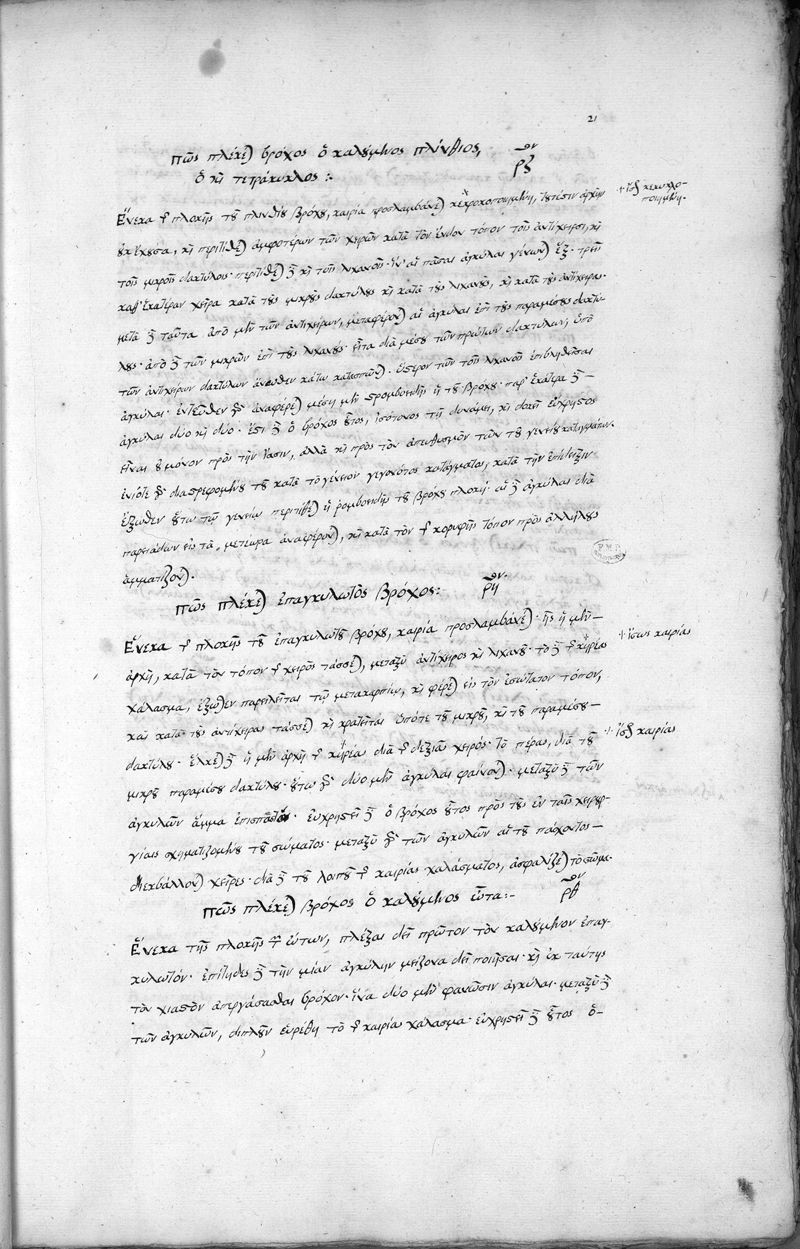 21
πῶς πλέκε) βρόχος ὁ καλούμενος πλίνθιος, ρζ ον
ὁ κὶ τετράκυκλος :.
Ἕνεκα τ πλοκῆς τοῦ πλινθίου βρόχου, καιρία προσλαμβάνε) τουτέστιν ἀρχὴν
οὐκ ἔχουσα, κὶ περιτίθε) ἀμφοτέρων τῶν χειρῶν κατὰ τὸν ἔνδον τόπον τοῖς ἀντίχειρσι, κὶ
τοῖς μικροῖς δακτύλοις· περιτίθε) δὲ κὶ τοῖς λιχανοῖς· ἵν' αἱ πᾶσαι ἀγκύλαι γένων) ἕξ· τρεῖς
καθ' ἑκατέραν χεῖρα κατὰ τοὺς μικροὺς δακτύλους κὶ κατὰ τοὺς λιχανοὺς, κὶ κατὰ τοὺς ἀντίχειρας·
μετὰ δὲ ταῦτα ἀπὸ μὲν τῶν ἀντιχείρων, μεταφέρον) αἱ ἀγκύλαι ἐπὶ τοὺς παραμέσους δακτύ-
λους· ἀπὸ δὲ τῶν μικρῶν ἐπὶ τοὺς λιχανούς· εἶτα διὰ μέσου τῶν πρώτων δακτύλων, ὑπὸ
τῶν ἀντιχείρων δακτύλων ἄνωθεν κάτω κατασπῶν)· ὕστερον τῶν τοῖς λιχανοῖς ἐπιβληθεῖσαι
ἀγκύλαι· ἐντεῦθεν γὰρ ἀναφέρε) μέση μὲν ῥομβοειδὴς ἡ τοῦ βρόχου· παρ' ἑκάτερα δὲ –
ἀγκύλαι δύο κὶ δύο· ἔστι δὲ ὁ βρόχος οὗτος, ἰσότονος τῇ δυνάμει, κὶ δοκεῖ εὔχρηστος
εἶναι οὐ μόνον πρὸς τὴν ἴασιν, ἀλλὰ κὶ πρὸς τὸν ἀπευθυσμὸν τῶν τοῦ γενείου καταγμάτων·
ἐνίοτε γὰρ διαστρεφομένου τοῦ κατὰ τὸ γένειον γεγονότος κατάγματος, κατὰ τὴν ἐπίδεσιν
ἔξωθεν οὕτω τῷ γενείῳ περιτίθε) ἡ ῥομβοειδὴς τοῦ βρόχου πλοκή· αἱ δὲ ἀγκύλαι διὰ
παρειάδων εἰς τὰ μετέωρα ἀναφέρον), κὶ κατὰ τὸν τ κορυφῆς τόπον πρὸς ἀλλήλους
ἁμματίζον).
πῶς πλέκε) ἐπαγκυλωτὸς βρόχος: ρη ον
Ἕνεκα τ πλοκῆς τοῦ ἐπαγκυλωτοῦ βρόχου, καιρία προσλαμβάνε)· ἧς ἡ μὲν –
ἀρχὴ, κατὰ τὸν τόπον τ χειρὸς τάσσε), μεταξὺ ἀντίχειρος κὶ λιχανοῦ· τὸ δὲ τ
χάλασμα, ἔξωθεν παρειλεῖται τῷ μετακαρπίῳ, κὶ φέρε) εἰς τὸν ἐσώτατον τόπον,
καὶ κατὰ τοὺς ἀντίχειρας τάσσε) κὶ κρατεῖται ὑπό τε τοῦ μικροῦ, κὶ τοῦ παραμέσου –
δακτύλου· ἕλκε) δὲ ἡ μὲν ἀρχὴ τ διὰ τ δεξιᾶς χειρός· τὸ πέρας, διὰ τοῦ
μικροῦ παραμέσου δακτύλου· οὕτω γὰρ δύο μὲν ἀγκύλαι φαίνον)· μεταξὺ δὲ τῶν
ἀγκυλῶν ἅμμα ἐπισπαστόν· εὐχρηστεῖ δὲ ὁ βρόχος οὗτος πρὸς τοὺς ἐν ταῖς χειρουρ-
γίαις σχηματιζομένους τοῦ σώματος· μεταξὺ γὰρ τῶν ἀγκυλῶν αἱ τοῦ πάσχοντος –
διεκβάλλον) χεῖρες· διὰ δὲ τοῦ λοιποῦ τ καιρίας χαλάσματος, ἀσφαλίζε) τὸ σῶμα.
πῶς πλέκε) βρόχος ὁ καλούμενος ὦτα :- ρθ ον
Ἕνεκα τῆς πλοκῆς τῶν ὤτων, πλέξαι δεῖ πρῶτον τὸν καλούμενον ἐπαγ-
κυλωτόν· ἐπίτηδες δὲ τὴν μίαν ἀγκύλην μείζονα δεῖ ποιῆσαι· κὶ ἐκ ταύτης
τὸν χιαστὸν ἀπεργάσασθαι βρόχον· ἵνα δύο μὲν φανῶσιν ἀγκύλαι· μεταξὺ δὲ
τῶν ἀγκυλῶν, διπλοῦν εὑρεθῇ τὸ τ καιρίας χάλασμα· εὐχρηστεῖ δὲ οὗτος ὁ –
+ ἴσως κεκυκλο-
ποιημένη.
+ ἴσως καιρίας
+ ἴσως καιρίας